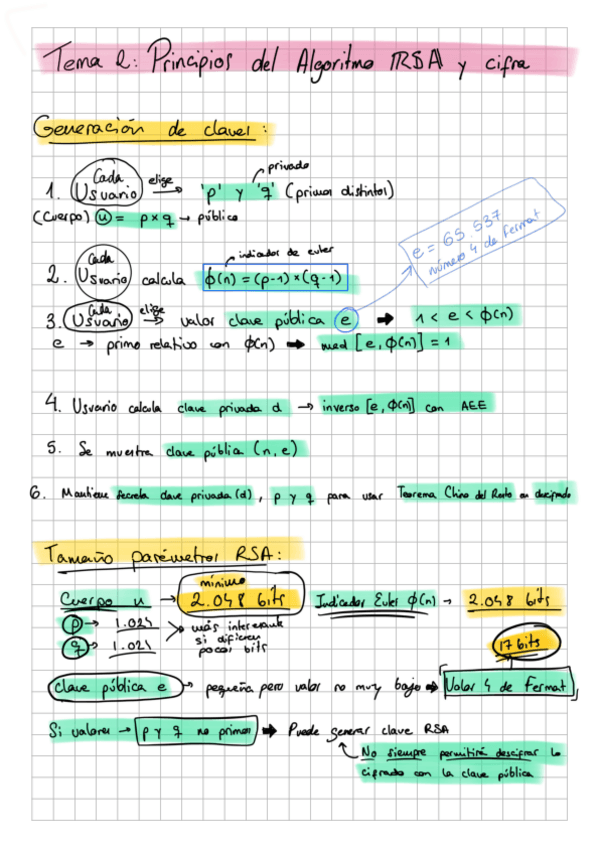 Tema 2: Principios del Algoritmo RSA y cifra
Generación de claves:
privado
1. Cada Usuario elige → 'p' y 'q' (primos distintos)
(Cuerpo) n = p × q → público
e = 65.537
número 4 de Fermat
indicador de euler
2. Cada Usuario calcula ϕ(n) = (p-1) × (q-1)
3. Cada Usuario elige → valor clave pública e → 1 < e < ϕ(n)
e → primo relativo con ϕ(n) → mcd [e, ϕ(n)] = 1
4. Usuario calcula clave privada d → inverso [e, ϕ(n)] con AEE
5. Se muestra clave pública (n, e)
6. Mantiene secreta clave privada (d), p y q para usar Teorema Chino del Resto en descifrado
Tamaño parámetros RSA:
mínimo
Cuerpo n → 2.048 bits
Indicador Euler ϕ(n) → 2.048 bits
p → 1.024
q → 1.024
más interesante
si difieren
pocos bits
17 bits
Clave pública e → pequeña pero valor no muy bajo → Valor 4 de Fermat
Si valores → p y q no primos → Puede generar clave RSA
No siempre permitirá descifrar lo
cifrado con la clave pública